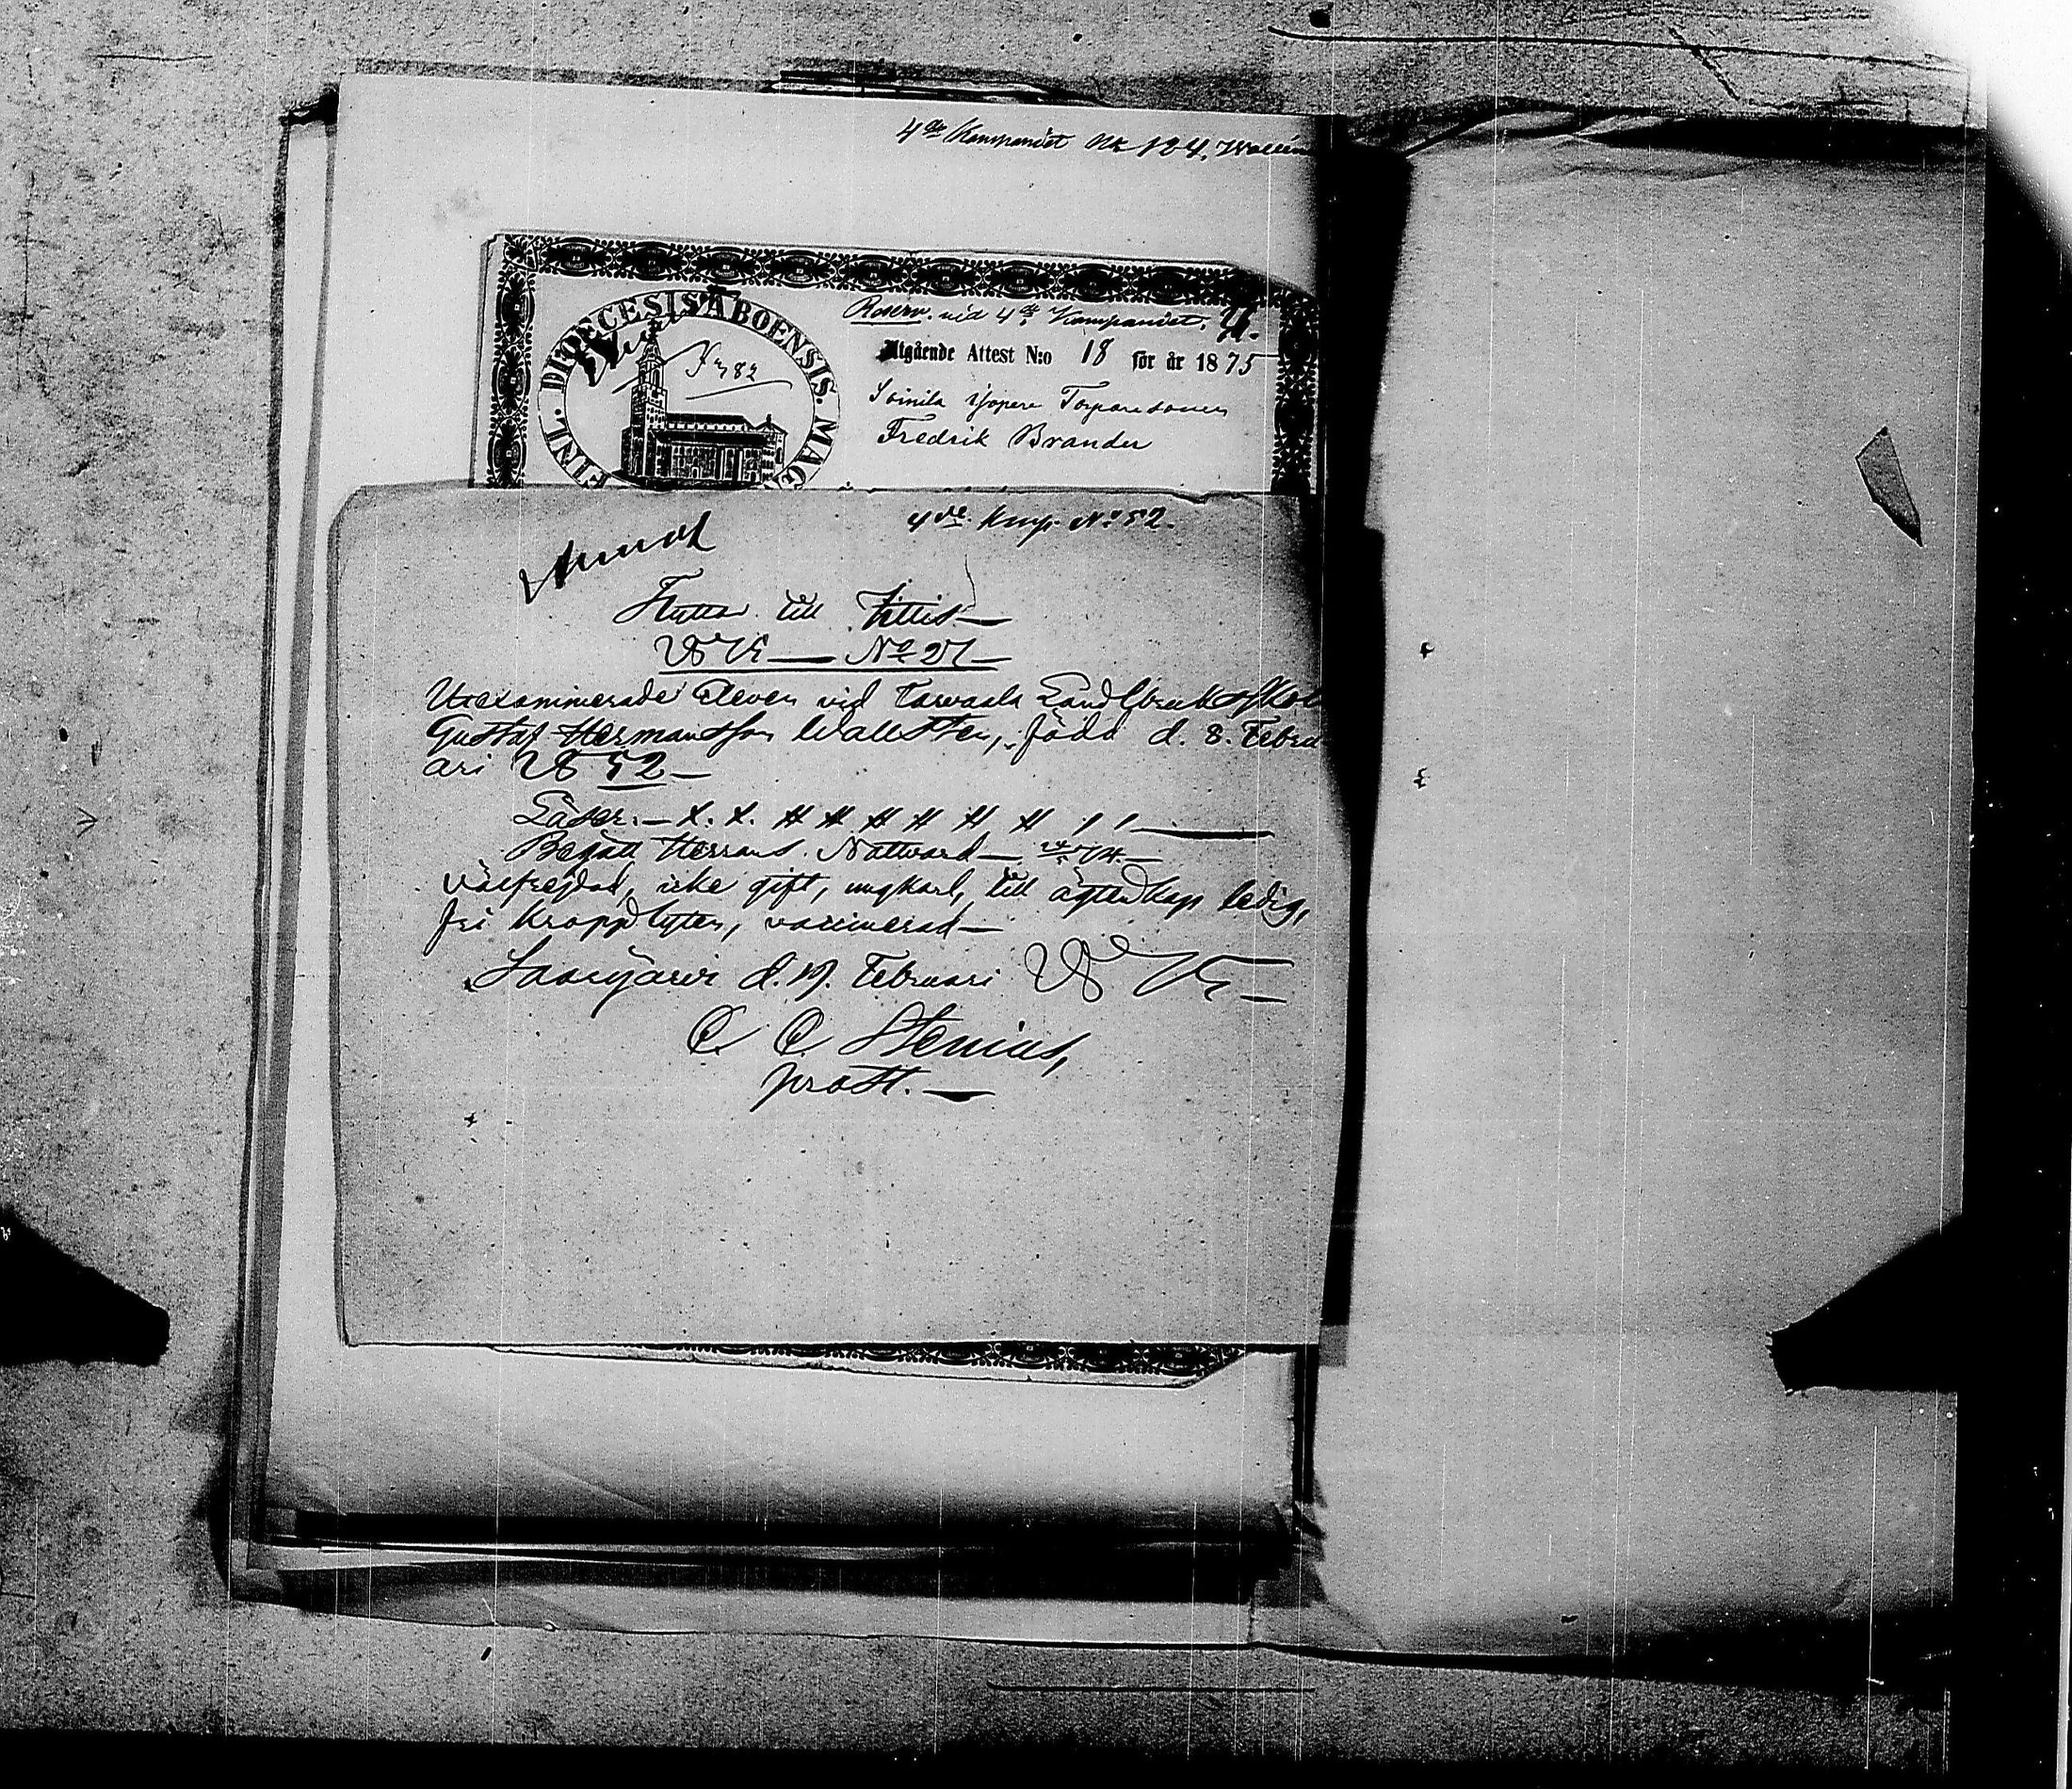 4de Kompaniet No 124. Wallin
Reserv. vid 4de Kompaniet.
FINL. DIOECESIS ABOENSIS. MAG
Utgående Attest N:o 18 för år 1875
Soinila Torparesonen
Fredrik Brander
4de Komp. No 52.
Flyttar till Ittis—
1875 — No 21—
Utexaminerade Eleven vid Tarvaala Landtbruksskol
Gustaf Hermansson Wallsten, född d. 8. Febru
ari 1852—
Läser.— x. x. # # # # # #
Begått Herrans Nattvard— 74—
välfrejdad, icke gift, ungkarl, till ägtenskap ledig,
fri kroppslyten, vaccinerad—
Saarijärvi d. 19. Februari 1875—
C. C. Stenius,
prost.—